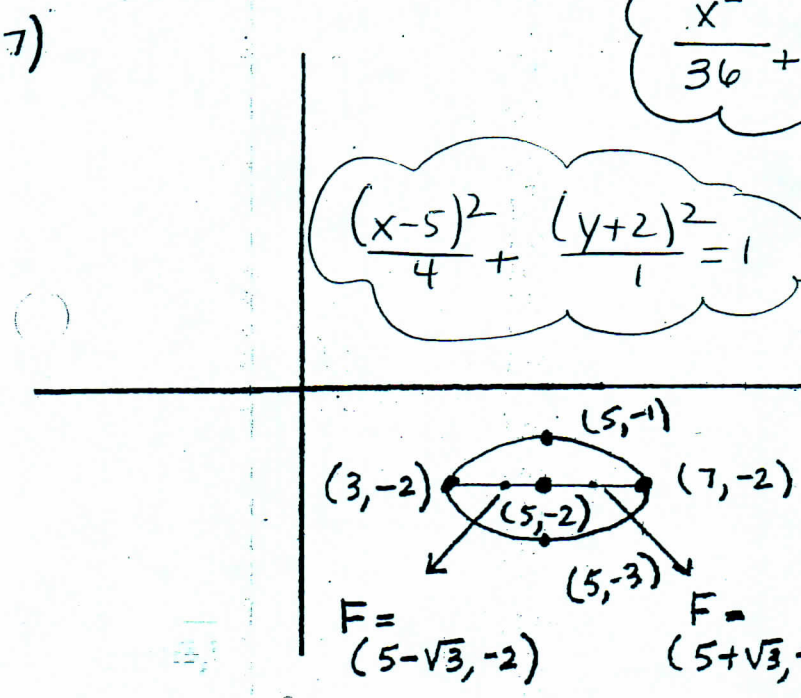 7)
x
36 +
(x-5)²/4 + (y+2)²/1 = 1
(5,-1)
(3,-2) (7,-2)
(5,-2)
(5,-3)
F = F =
(5-√3, -2) (5+√3, -